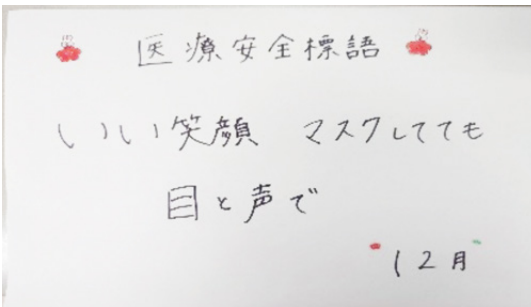 医療安全標語
いい笑顔 マスクしてても
目と声で
12月